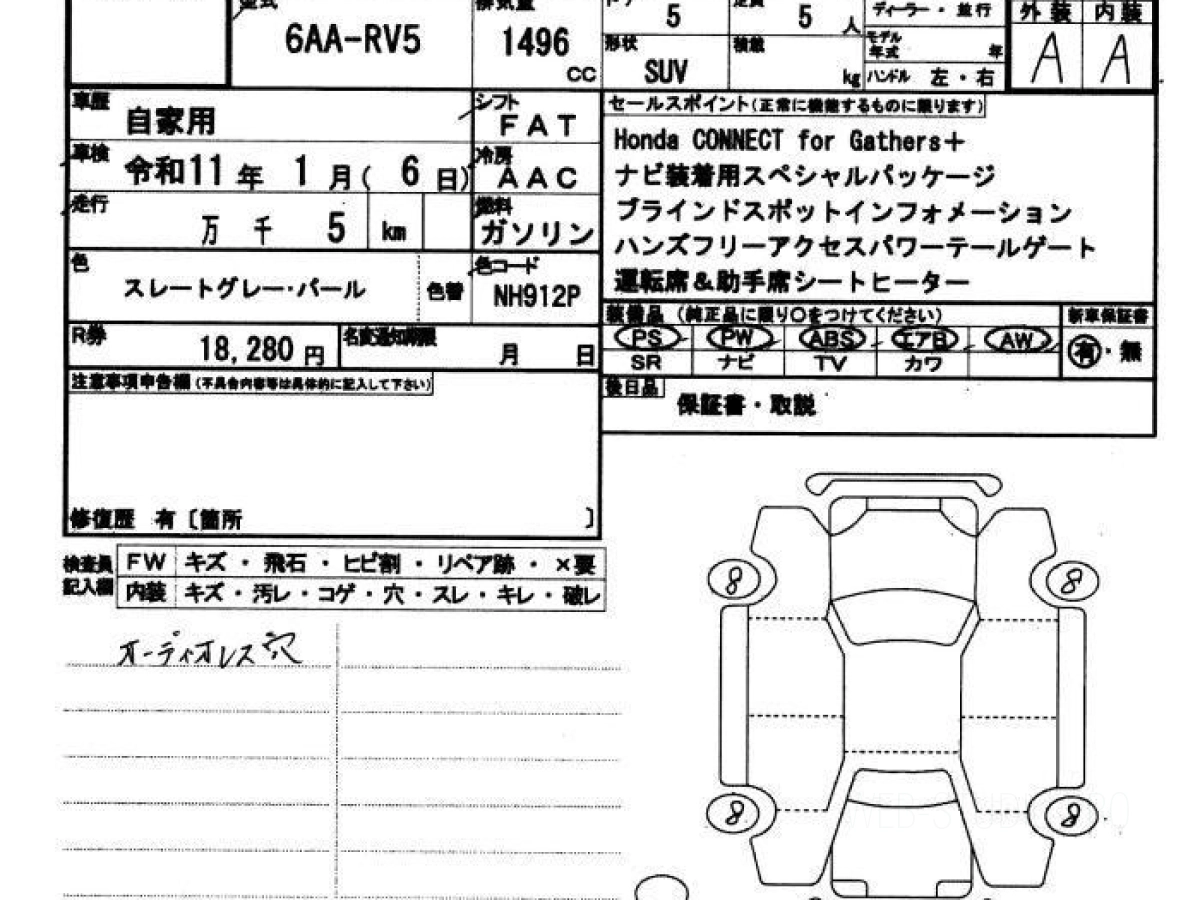 型式 6AA-RV5
排気量 1496 CC
ドア 5
定員 5 人
形状 SUV
積載 kg
ディーラー・並行
モデル年式 年
ハンドル 左・右
外装 内装
A A
車歴 自家用
シフト FAT
車検 令和11年 1月( 6日)
冷房 AAC
走行 万 千 5 km
燃料 ガソリン
色 スレートグレー・パール 色替
色コード NH912P
R券 18,280 円
名変通知期限 月 日
注意事項申告欄(不具合内容等は具体的に記入して下さい)
修復歴 有〔箇所 〕
セールスポイント(正常に機能するものに限ります)
Honda CONNECT for Gathers+
ナビ装着用スペシャルパッケージ
ブラインドスポットインフォメーション
ハンズフリーアクセスパワーテールゲート
運転席&助手席シートヒーター
装備品 (純正品に限り○をつけてください)
PS PW ABS エアB AW
SR ナビ TV カワ
新車保証書
有・無
後日品 保証書・取説
検査員記入欄
FW キズ・飛石・ヒビ割・リペア跡・×要
内装 キズ・汚レ・コゲ・穴・スレ・キレ・破レ
オーディオレス穴
8 8
8 8